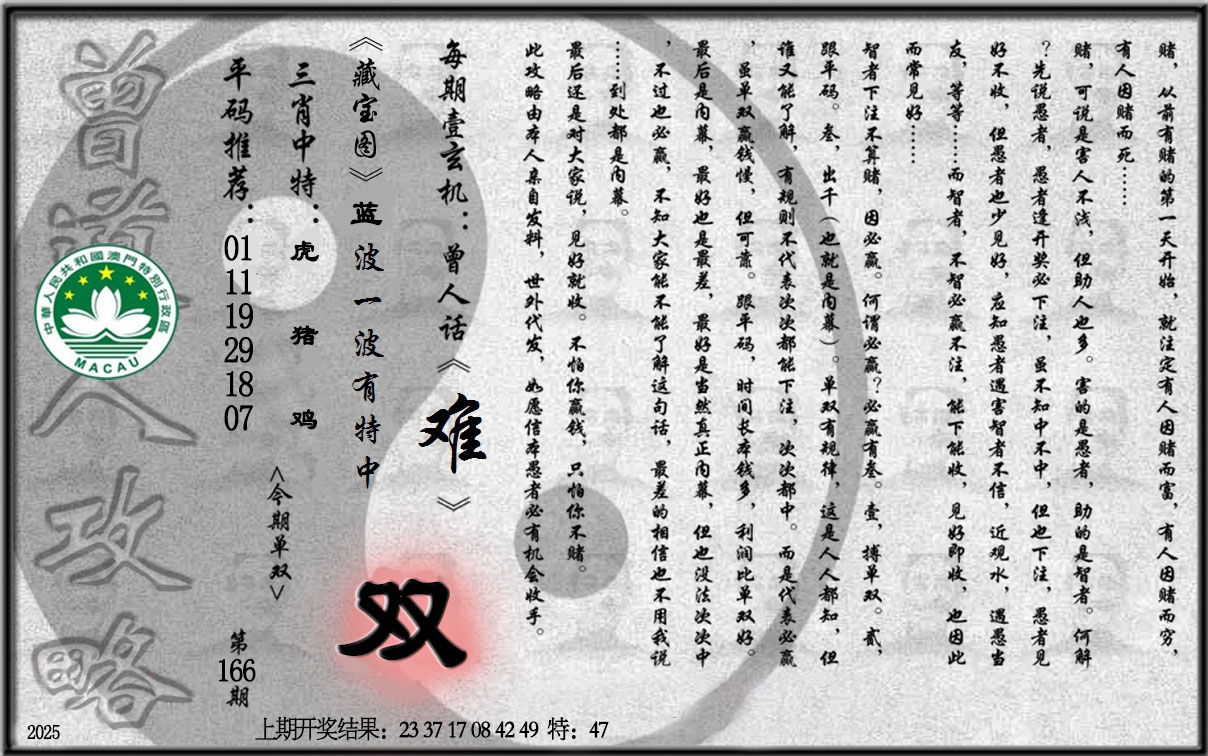 赌，从前有赌的第一天开始，就注定有人因赌而富，有人因赌而穷，
有人因赌而死……
赌，可说是害人不浅，但助人也多。害的是愚者，助的是智者。何解
？先说愚者，愚者逢开奖必下注，虽不知中不中，但也下注，愚者见
好不收，但愚者也少见好，应知愚者遇害智者不信，近观水，遇愚当
友，等等……而智者，不智必赢不注，能下能收，见好即收，也因此
而常见好……
智者下注不算赌，因必赢。何谓必赢？必赢有叁。壹，搏单双。贰，
跟平码。叁，出千（也就是内幕）。单双有规律，这是人人都知，但
谁又能了解，有规则不代表次次都能下注，次次都中。而是代表必赢
，虽单双赢钱慢，但可靠。跟平码，时间长本钱多，利润比单双好。
最后是内幕，最好也是最差，最好是当然真正内幕，但也没法次次中
，不过也必赢，不知大家能不能了解这句话，最差的相信也不用我说
……到处都是内幕。
最后还是对大家说，见好就收。不怕你赢钱，只怕你不赌。
此攻略由本人亲自发料，世外代发，如愿信本愚者必有机会收手。
每期壹玄机：曾人话《难》
《藏宝图》蓝波一波有特中
双
三肖中特：虎 猪 鸡
<今期单双>
平码推荐：01 11 19 29 18 07
第166期
曾道人攻略
中華人民共和國澳門特別行政區
MACAU
2025
上期开奖结果：23 37 17 08 42 49 特：47